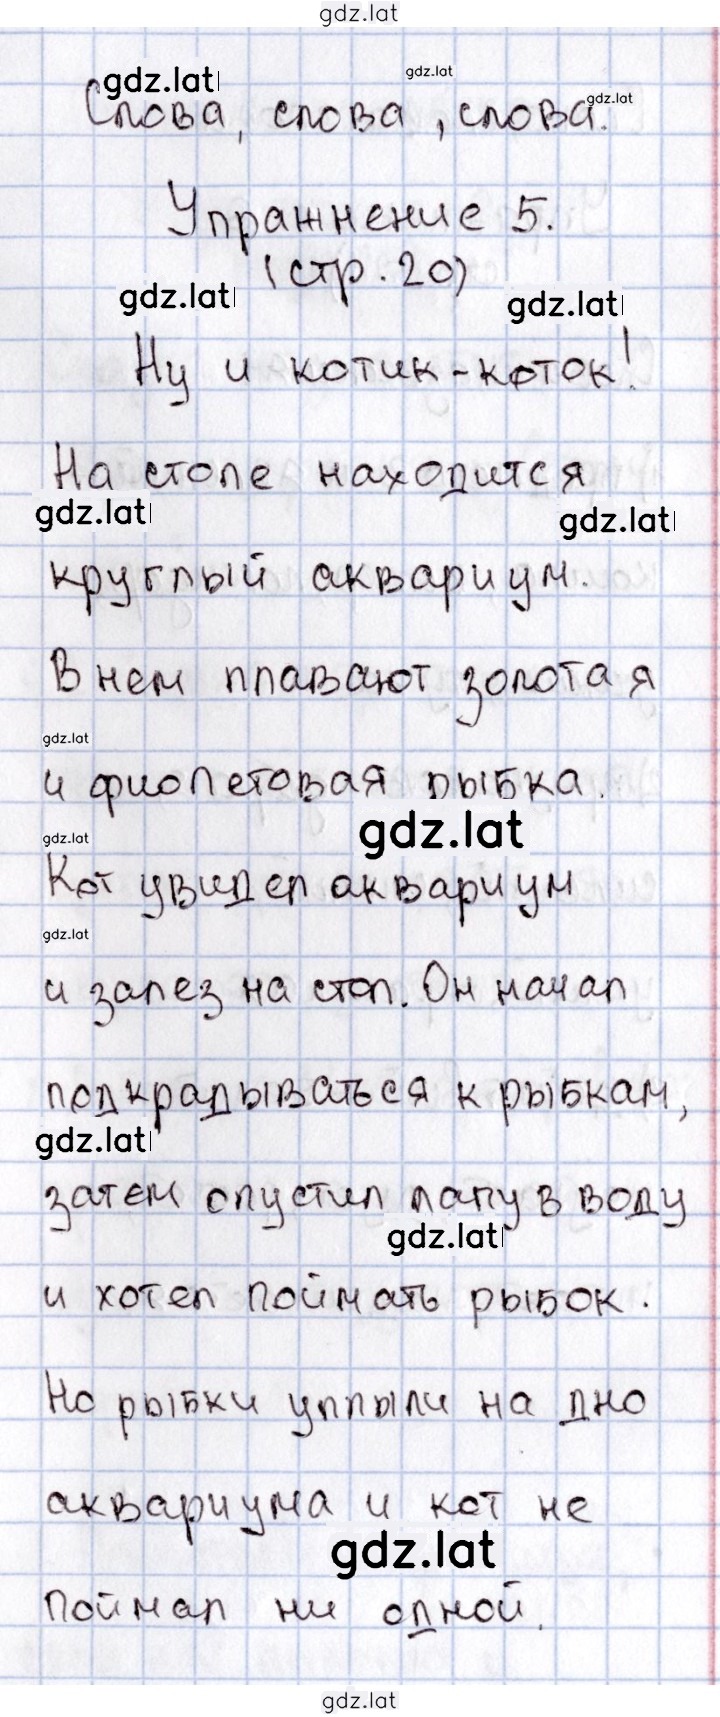 gdz.lat
gdz.lat gdz.lat gdz.lat
Слова, слова, слова.
Упражнение 5.
(стр. 20)
gdz.lat gdz.lat
Ну и котик-коток!
На столе находится
gdz.lat gdz.lat
круглый аквариум.
В нем плавают золотая
gdz.lat
и фиолетовая рыбка.
gdz.lat gdz.lat
Кот увидел аквариум
gdz.lat
и залез на стол. Он начал
подкрадываться к рыбкам,
gdz.lat
затем опустил лапу в воду
gdz.lat
и хотел поймать рыбок.
Но рыбки уплыли на дно
аквариума и кот не
gdz.lat
поймал ни одной.
gdz.lat